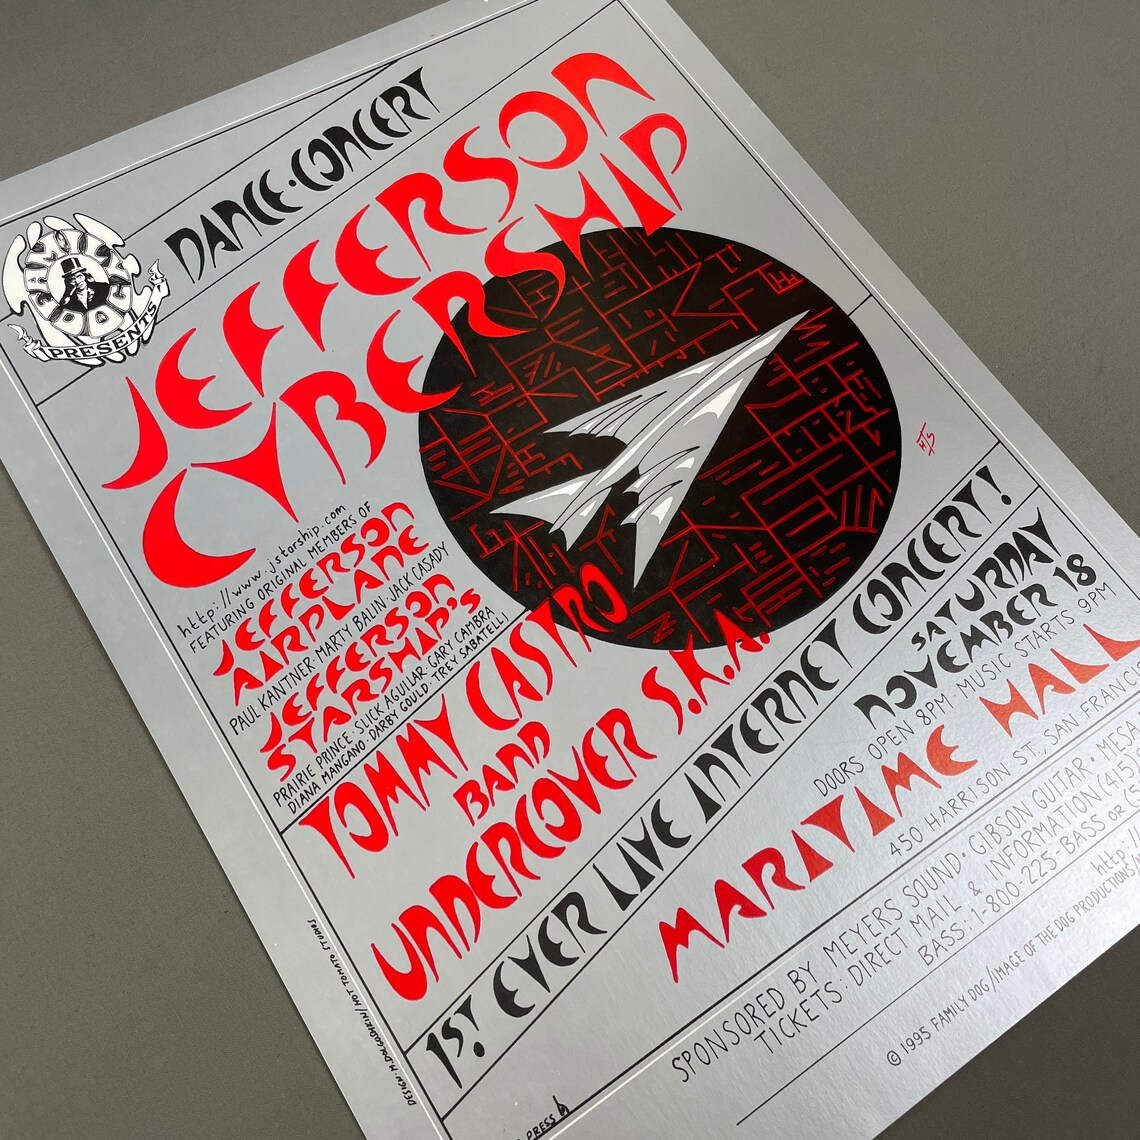 DANCE·CONCERT
FAMILY
DOG
PRESENTS
JEFFERSON
CYBERSHIP
http://www.jstarship.com
FEATURING ORIGINAL MEMBERS OF
JEFFERSON
AIRPLANE
PAUL KANTNER·MARTY BALIN·JACK CASADY
JEFFERSON
STARSHIP'S
PRAIRIE PRINCE·SLICK AGUILAR·GARY CAMBRA
DIANA MANGANO·DARBY GOULD·TREY SABATELLI
TOMMY CASTRO
BAND
UNDERCOVER S.K.A.
1ST EVER LIVE INTERNET CONCERT!
SATURDAY
NOVEMBER 18
DOORS OPEN 8PM·MUSIC STARTS 9PM
MARITIME HALL
450 HARRISON ST., SAN FRANCIS
SPONSORED BY MEYERS SOUND·GIBSON GUITAR·MESA
TICKETS: DIRECT MAIL & INFORMATION (415
BASS: 1-800-225-BASS OR (5
http:/
© 1995 FAMILY DOG/IMAGE OF THE DOG PRODUCTIONS/
DESIGN·M.DOLGUSHKIN/HOT TOMATO STUDIOS
PRESS